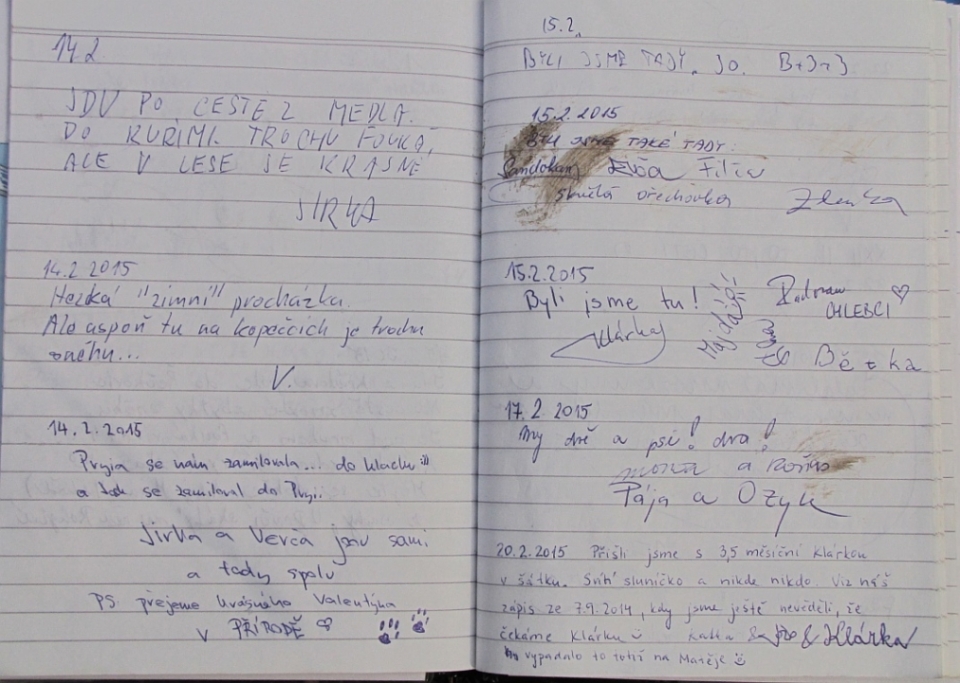 14.2
JDU PO CESTĚ Z MEDLA.
DO KUŘIMI. TROCHU FOUKÁ,
ALE V LESE JE KRÁSNĚ
JIRKA
14.2 2015
Hezká "zimní" procházka.
Ale aspoň tu na kopečcích je trochu
sněhu...
V.
14.2.2015
se nám zamilovala... do kluchu :))
a ten se zamiloval do
Jirka a Verča jsou sami
a tady spolu
PS. přejeme krásného Valentýna
V PŘÍRODĚ ♡
15.2.
BYLI JSME TADY. JO. B+J+J
15.2.2015
BYLI JSME TAKÉ TADY:
Sandokan Eliča Filip
skvělá ořechovka Zlenka
15.2.2015
Byli jsme tu!
Klárka
Majda
Radovan
CHLEBCI ♡
Bětka
17.2.2015
My dvě a psi! dva!
a
Pája a Ozyk
20.2.2015 Přišli jsme s 3,5 měsíční Klárkou
v šátku. Svítí sluníčko a nikde nikdo. Viz náš
zápis ze 7.9.2014, kdy jsme ještě nevěděli, že
čekáme Klárku ☺ Katka & & Klárka
vypadalo to totiž na Matěje ☺